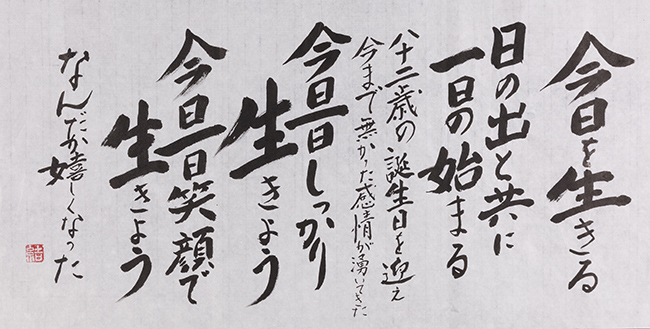 今日を生きる
日の出と共に
一日の始まる
八十二歳の誕生日を迎え
今まで無かった感情が湧いてきた
今日一日しっかり
生きよう
今日一日笑顔で
生きよう
なんだか嬉しくなった